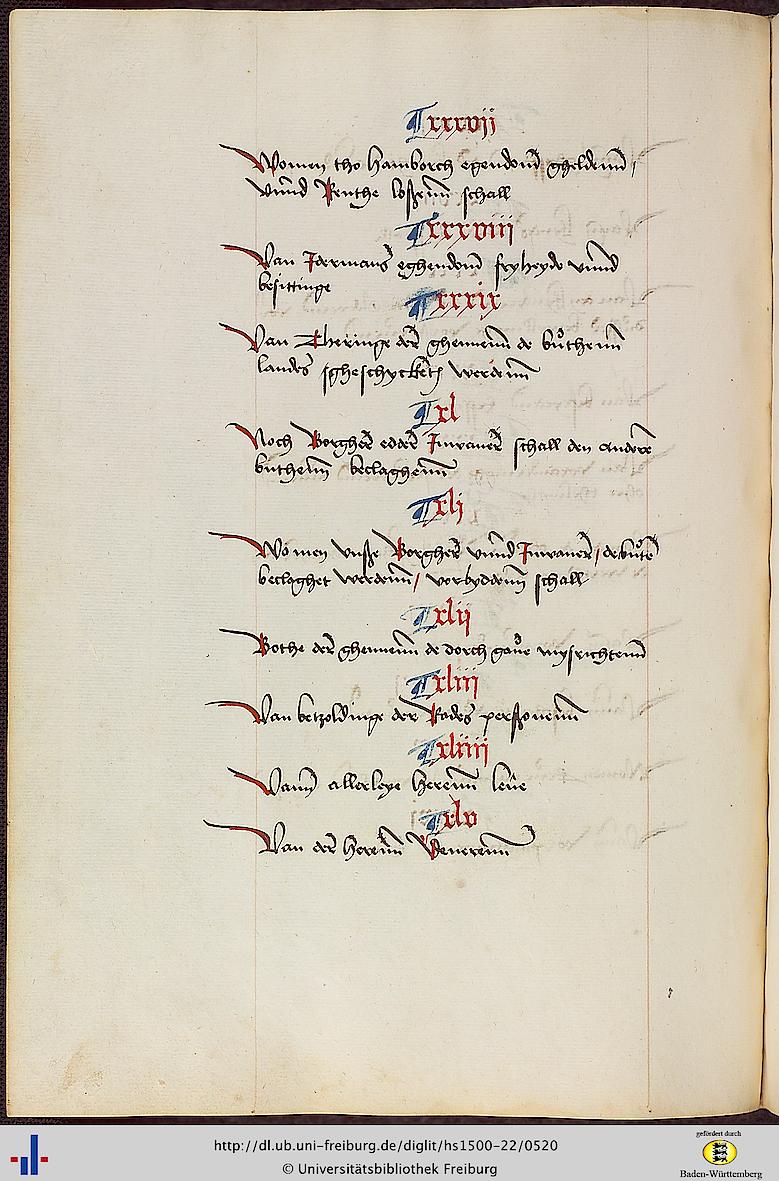 ¶xxxvij
Women tho hamborch egendom̄ gheldenn̄ /
vnnd Renthe loßenn schall
¶xxxviii
Van Jdermans eghendom̄ fryheyde vnnd
besittinge
¶xxxix
Van theringe der ghennenn de buthenn
landes gheschycket werdenn
¶xl
Noch Borgher edder Jnwaner schall den anderen
buthenn beclaghenn
¶xlj
Wo men vnße Borgher vnnd Jnwaner / de buten
beclaghet werdenn / vorbydden schall
¶xlij
Bothe der ghennenn de dorch gaue mysrichtenn
¶xliij
Van betzoldinge der Rades perßonenn
¶xliiij
Vann allerleye herenn leue
¶xlv
Van der herenn
http://dl.ub.uni-freiburg.de/diglit/hs1500-22/0520
© Universitätsbibliothek Freiburg
gefördert durch
Baden-Württemberg